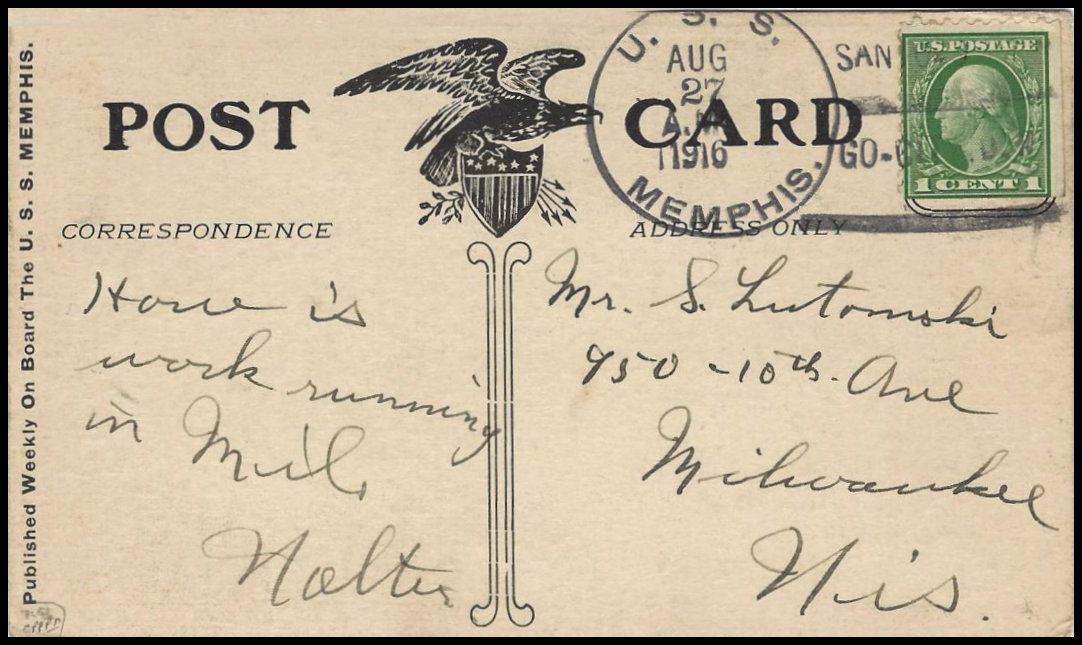 Published Weekly On Board The U. S. S. MEMPHIS.
POST CARD
U. S. S.
MEMPHIS.
AUG
27
A.M
1916
SAN
GO-
U.S.POSTAGE
1 CENT 1
CORRESPONDENCE
ADDRESS ONLY
How is
work running
in Mil.
Walter
Mr. S. Lutomski
950 - 10th. Ave
Milwaukee
Wis.